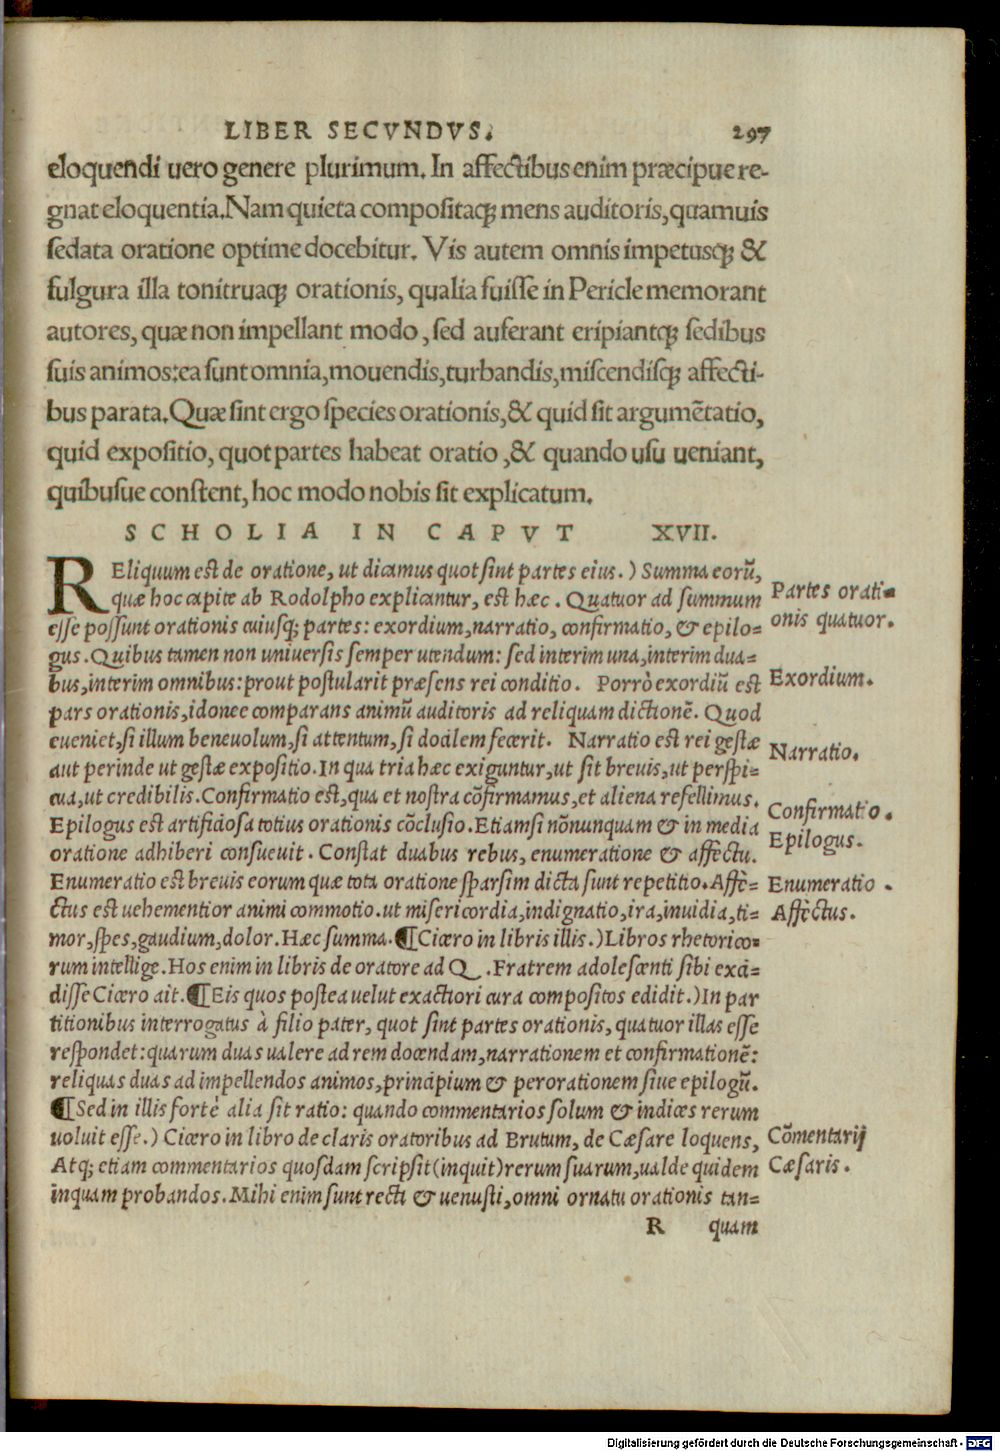 LIBER SECVNDVS. 297
eloquendi uero genere plurimum. In affectibus enim præcipue re-
gnat eloquentia. Nam quieta compositaq; mens auditoris, quamuis
sedata oratione optime docebitur. Vis autem omnis impetusq; &
fulgura illa tonitruaq; orationis, qualia fuisse in Pericle memorant
autores, quæ non impellant modo, sed auferant eripiantq; sedibus
suis animos: ea sunt omnia, mouendis, turbandis, miscendisq; affecti-
bus parata. Quæ sint ergo species orationis, & quid sit argumẽtatio,
quid expositio, quot partes habeat oratio, & quando usu ueniant,
quibusue constent, hoc modo nobis sit explicatum.
SCHOLIA IN CAPVT XVII.
REliquum est de oratione, ut dicamus quot sint partes eius.) Summa eorũ,
quæ hoc capite ab Rodolpho explicantur, est hæc. Quatuor ad summum
esse possunt orationis cuiusq; partes: exordium, narratio, confirmatio, & epilo=
gus. Quibus tamen non uniuersis semper utendum: sed interim una, interim dua=
bus, interim omnibus: prout postularit præsens rei conditio. Porrò exordiũ est
pars orationis, idonee comparans animũ auditoris ad reliquam dictionẽ. Quod
eueniet, si illum beneuolum, si attentum, si docilem fecerit. Narratio est rei gestæ
aut perinde ut gestæ expositio. In qua tria hæc exiguntur, ut sit breuis, ut perspi=
cua, ut credibilis. Confirmatio est, qua et nostra cõfirmamus, et aliena refellimus.
Epilogus est artificiosa totius orationis cõclusio. Etiamsi nõnunquam & in media
oratione adhiberi consueuit. Constat duabus rebus, enumeratione & affectu.
Enumeratio est breuis eorum quæ tota oratione sparsim dicta sunt repetitio. Affe=
ctus est uehementior animi commotio. ut misericordia, indignatio, ira, inuidia, ti=
mor, spes, gaudium, dolor. Hæc summa. ¶ Cicero in libris illis.) Libros rhetorico=
rum intellige. Hos enim in libris de oratore ad Q. Fratrem adolescenti sibi exci=
disse Cicero ait. ¶ Eis quos postea uelut exactiori cura compositos edidit.) In par
titionibus interrogatus à filio pater, quot sint partes orationis, quatuor illas esse
respondet: quarum duas ualere ad rem docendam, narrationem et confirmationẽ:
reliquas duas ad impellendos animos, principium & perorationem siue epilogũ.
¶ Sed in illis fortè alia sit ratio: quando commentarios solum & indices rerum
uoluit esse.) Cicero in libro de claris oratoribus ad Brutum, de Cæsare loquens,
Atq; etiam commentarios quosdam scripsit (inquit) rerum suarum, ualde quidem
inquam probandos. Mihi enim sunt recti & uenusti, omni ornatu orationis tan=
R quam
Partes orati=
onis quatuor.
Exordium.
Narratio.
Confirmatio.
Epilogus.
Enumeratio.
Affectus.
Cõmentarij
Cæsaris.
Digitalisierung gefördert durch die Deutsche Forschungsgemeinschaft - DFG